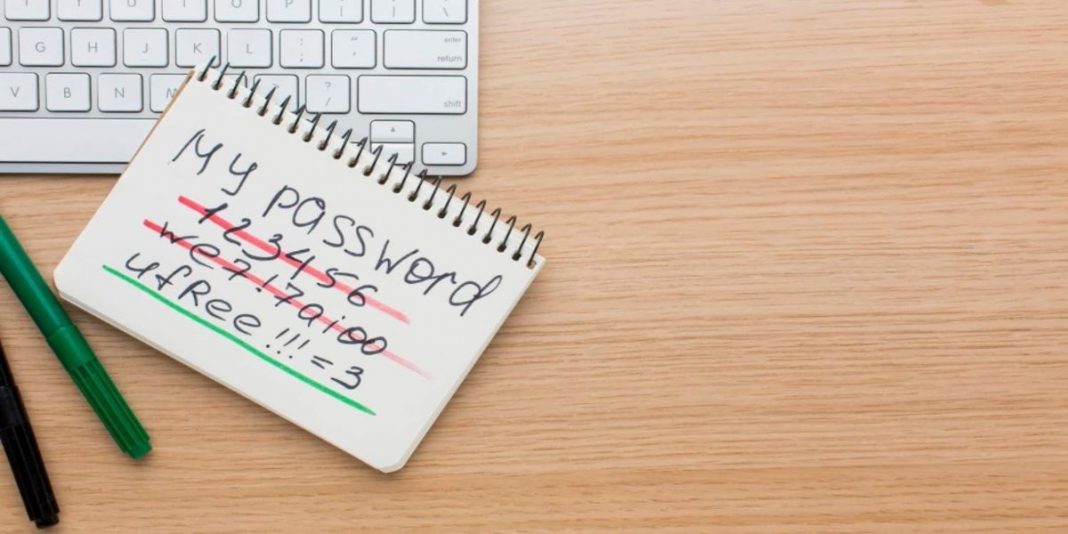 O P [ { ] } \
G H J K L : ; " ' enter return
V B N M ? / shift
My password
123456
we7!7aioo
ufRee!!!=3